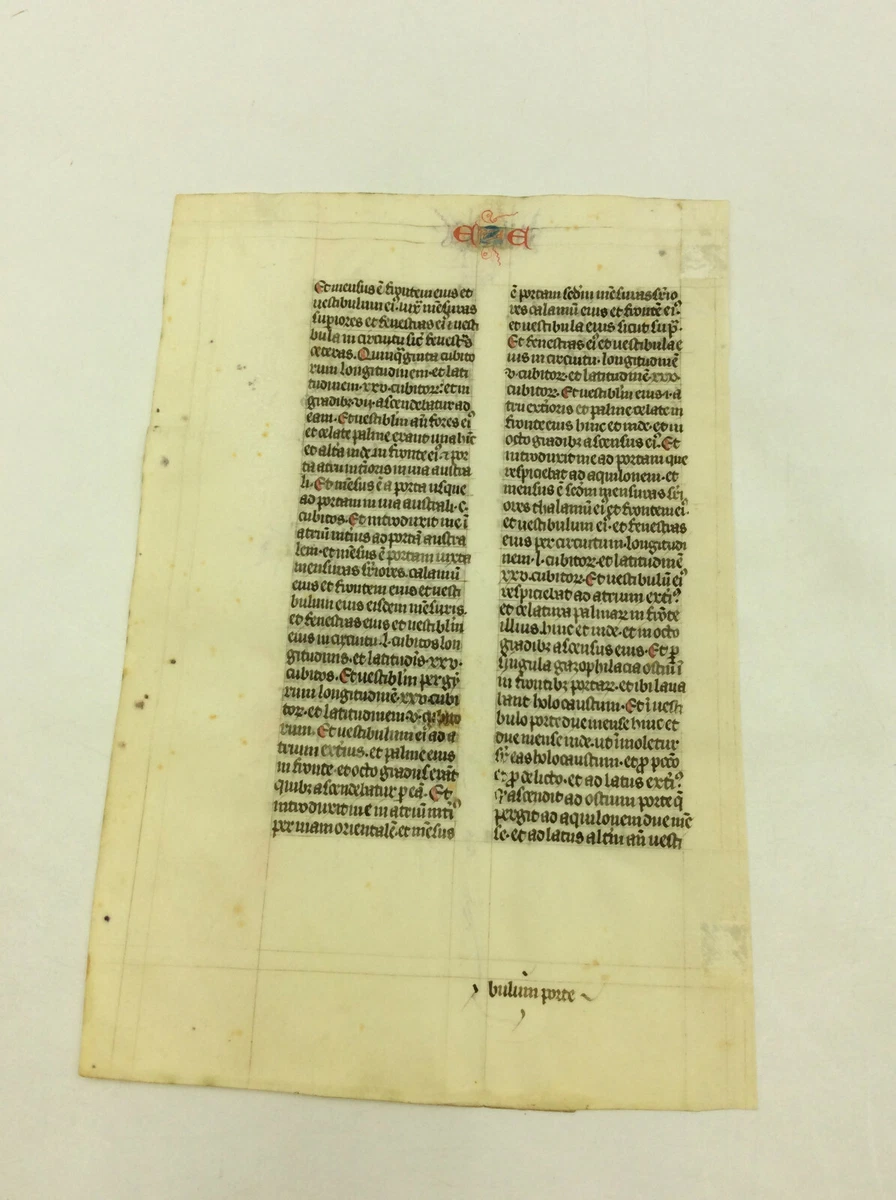 EZE
Et mensus ē frontem eius et
uestibulum ei᷒ iuxͣ mēsuras
supiores et fenestras ei᷒ ⁊ uesti
bula in circuitu sic̄ fenestͣs
ceteras. Quinq̄ginta cubito
rum longitudinem et lati
tudinem .xxv. cubitoꝝ: et in
gradibꝫ .vii. ascendebatur ad
eam. Et uestiblm an̄ fores ei᷒
et celate palme erant una hīc
et altͣa inde in fronte ei᷒ ⁊ por
ta atrii intioris in uia austra
li. Et mēsus ē a porta usque
ad portam in uia australi .c.
cubitos. Et introduxit me ī
atriū intius ad portā austra
lem. et mēsus ē portam iuxta
mensuras sꝑiores. calamū
eius et frontem eius et uesti
bulum eius eisdem mēsuris.
et fenestras eius et uestiblm
eius in circuitu .l. cubitos lon
gitudinis. et latitudīs .xxv.
cubitos. Et uestiblm per gẏ
rum longitudinē .xxv. cubi
toꝝ. et latitudinem .v. cubito
rum. Et uestibulum ei᷒ ad a
trium extius. et palme eius
in fronte. et octo gradus erāt
quibꝫ ascendebatur ꝑ eā. Et
introduxit me in atriū inti᷒
per uiam orientalē. et mēsus
ē portam scdm mēsuras sꝑio
res calamū eius et frontē ei᷒.
et uestibula eius sicut supͣ.
Et fenestras ei᷒ et uestibula e
ius in circuitu. longitudinē
.v. cubitoꝝ. et latitudinē .xxv.
cubitoꝝ. Et uestiblm eius .i. a
trii extioris et palme celate in
fronte eius hinc et inde. et in
octo gradibꝫ ascensus ei᷒. Et
introduxit me ad portam que
respiciebat ad aquilonem. et
mensus ē scdm mensuras sꝑi
ores thalamū ei᷒ et frontem ei᷒.
et uestibulum ei᷒. et fenestras
eius per circuitum. longitudi
nem .l. cubitoꝝ. et latitudinē
.xxv. cubitoꝝ. Et uestibulū ei᷒
respiciebat ad atrium exti᷒.
et celatura palmaꝝ in frōte
illius. hinc et inde. et in octo
gradibꝫ ascensus eius. Et ꝑ
singula gazophilacia ostiū ī
in frontibꝫ portaꝝ. et ibi laua
bant holocaustum. Et ī uesti
bulo porte due mense hinc et
due mense inde. ut īmoletur
suꝑ eas holocaustum. et ꝓ pccō
et ꝓ delicto. et ad latus exti᷒
qͥ ascendit ad ostium porte q̄
pergit ad aquilonem due mē
se. et ad latus altm an̄ uesti
bulum porte